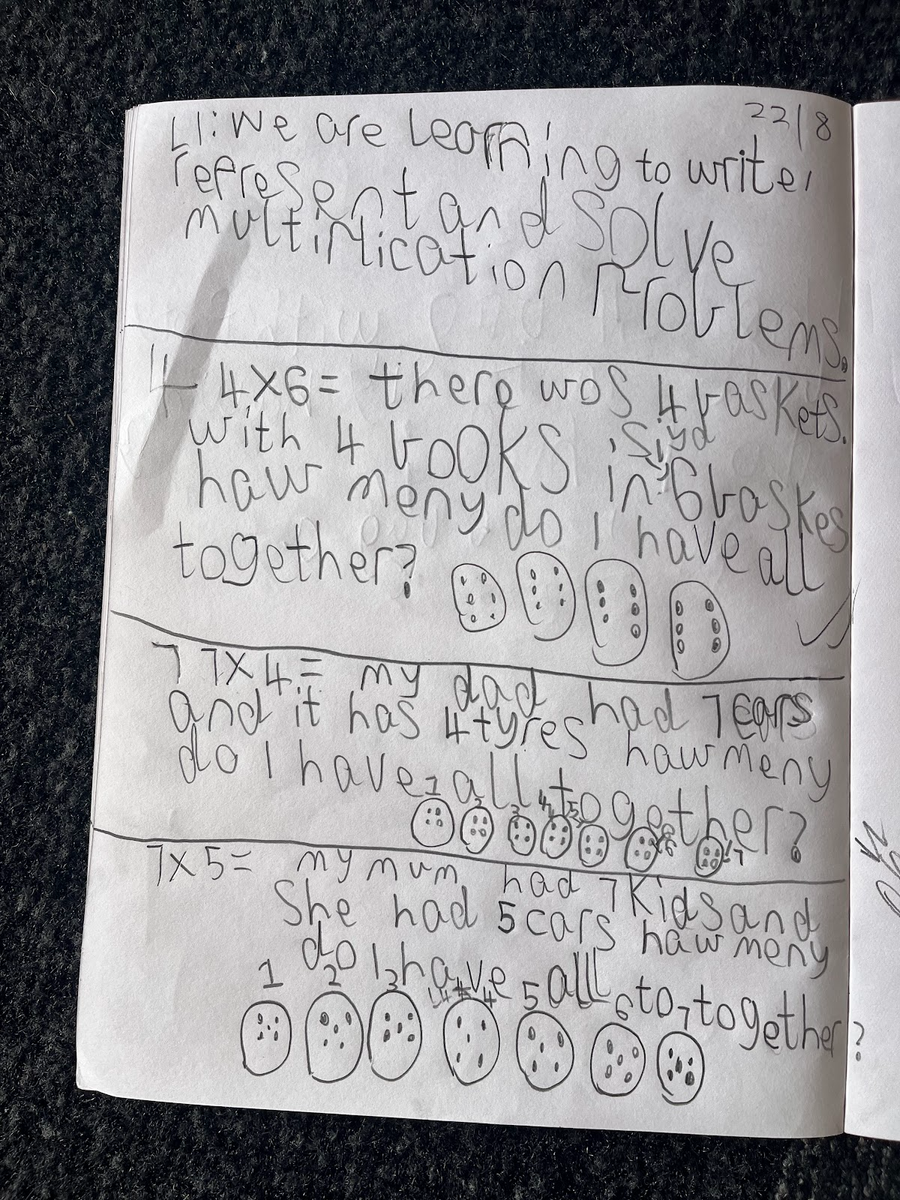 22/8
LI: We are learning to write,
represent and Solve
multiplication Problems.
4 4x6= there wos 4 baskets.
with 4 books isiyd
haw meny in 6 baskes
do I have all
together?
7 7x4= my dad had 7 cars
and it has 4 tyres haw meny
do I have all together?
1 2 3 4 5 6 7
7x5= my mum had 7 kids and
She had 5 cars haw meny
do I have all to together?
1 2 3 4 5 6 7